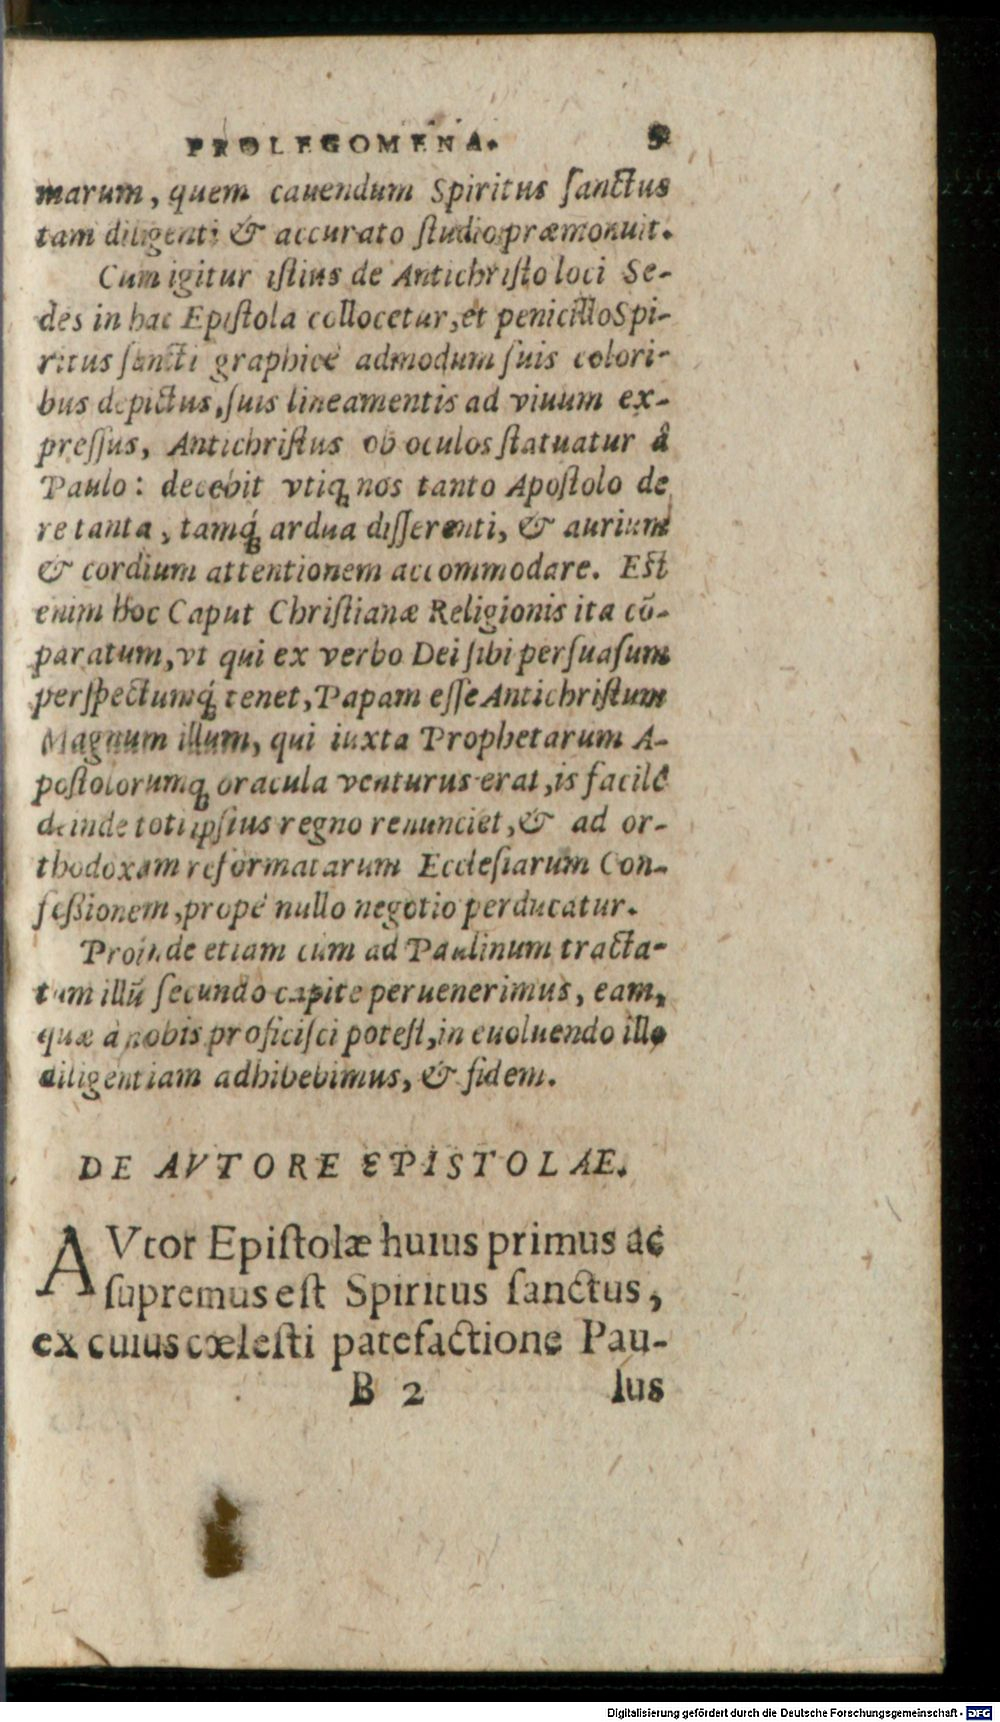 PROLEGOMENA. 9
marum, quem cauendum Spiritus ſanctus
tam diligenti & accurato ſtudio præmonuit.
Cum igitur iſtius de Antichriſto loci Se-
des in hac Epiſtola collocetur, et penicillo Spi-
ritus ſancti graphicè admodum ſuis colori-
bus depictus, ſuis lineamentis ad viuum ex-
preſſus, Antichriſtus ob oculos ſtatuatur â
Paulo: decebit vtiq; nos tanto Apoſtolo de
re tanta, tamq́; ardua diſſerenti, & aurium
& cordium attentionem accommodare. Eſt
enim hoc Caput Chriſtianæ Religionis ita cō-
paratum, vt qui ex verbo Dei ſibi perſuaſum
perſpectumq́; tenet, Papam eſſe Antichriſtum
Magnum illum, qui iuxta Prophetarum A-
poſtolorumq; oracula venturus erat, is facilè
deinde toti ipſius regno renunciet, & ad or-
thodoxam reformatarum Eccleſiarum Con-
feßionem, propè nullo negotio perducatur.
Proinde etiam cum ad Paulinum tracta-
tum illū ſecundo capite peruenerimus, eam,
quæ à nobis proficiſci poteſt, in euoluendo illo
diligentiam adhibebimus, & fidem.
DE AVTORE EPISTOLAE.
AVtor Epiſtolæ huius primus ac
ſupremus eſt Spiritus ſanctus,
ex cuius cœleſti patefactione Pau-
B 2 lus
Digitalisierung gefördert durch die Deutsche Forschungsgemeinschaft - DFG